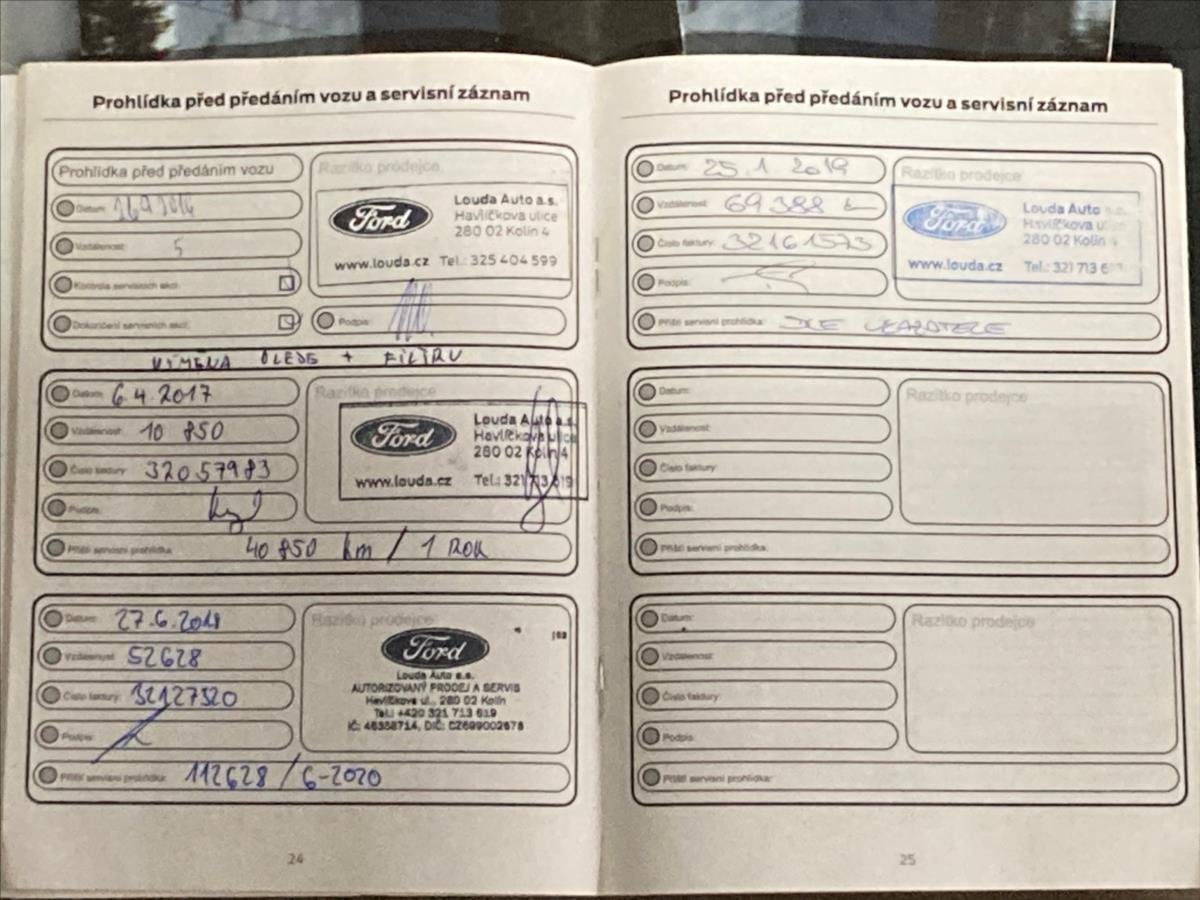 Prohlídka před předáním vozu a servisní záznam
Prohlídka před předáním vozu
Razítko prodejce
Datum:
Vzdálenost: 5
Kontrola servisních akcí
Dokončení servisních akcí
Ford
Louda Auto a.s.
Havlíčkova ulice
280 02 Kolín 4
www.louda.cz Tel.: 325 404 599
Podpis:
VÝMĚNA OLEJE + FILTRU
Datum: 6.4.2017
Vzdálenost: 10 850
Číslo faktury: 32057983
Podpis:
Razítko prodejce
Ford
Louda Auto a.s.
Havlíčkova ulice
280 02 Kolín 4
www.louda.cz Tel.: 321 713 619
Příští servisní prohlídka: 40 850 km / 1 ROK
Datum: 27.6.2018
Vzdálenost: 52628
Číslo faktury: 32127520
Podpis:
Razítko prodejce
Ford
Louda Auto a.s.
AUTORIZOVANÝ PRODEJ A SERVIS
Havlíčkova ul., 280 02 Kolín
Tel.: +420 321 713 619
IČ: 46358714, DIČ: CZ699002678
Příští servisní prohlídka: 112628 / 6-2020
24
Prohlídka před předáním vozu a servisní záznam
Datum: 25.1.2019
Vzdálenost: 69388
Číslo faktury: 32161573
Podpis:
Razítko prodejce
Ford
Louda Auto a.s.
Havlíčkova
280 02 Kolín
www.louda.cz Tel.: 321 713
Příští servisní prohlídka: DLE UKAZATELE
Datum:
Vzdálenost:
Číslo faktury:
Podpis:
Razítko prodejce
Příští servisní prohlídka:
Datum:
Vzdálenost:
Číslo faktury:
Podpis:
Razítko prodejce
Příští servisní prohlídka:
25